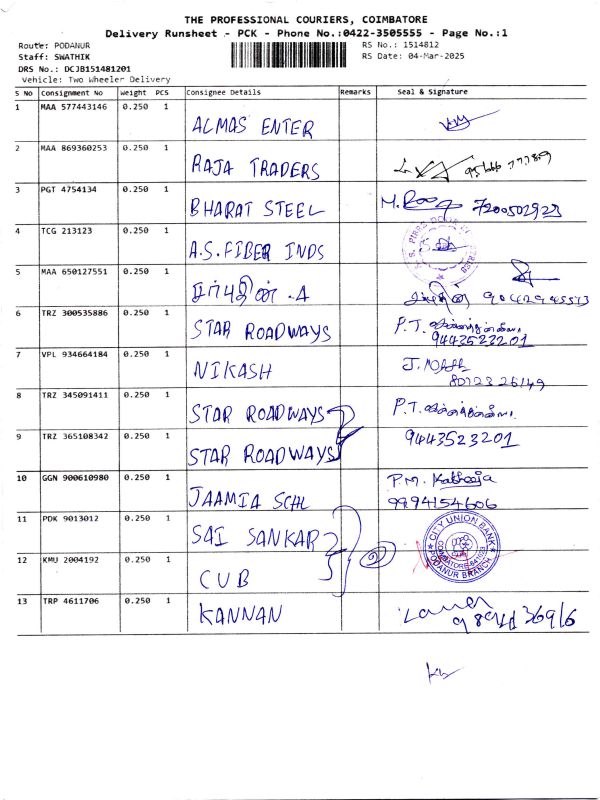 THE PROFESSIONAL COURIERS, COIMBATORE
Delivery Runsheet - PCK - Phone No.:0422-3505555 - Page No.:1
Route: PODANUR RS No.: 1514812
Staff: SWATHIK RS Date: 04-Mar-2025
DRS No.: DCJB151481201
Vehicle: Two Wheeler Delivery
S No Consignment No Weight PCS Consignee Details Remarks Seal & Signature
1 MAA 577443146 0.250 1 ALMAS ENTER
2 MAA 869360253 0.250 1 RAJA TRADERS
3 PGT 4754134 0.250 1 BHARAT STEEL 7200502923
4 TCG 213123 0.250 1 A.S. FIBER INDS
5 MAA 650127551 0.250 1 .A 9042945513
6 TRZ 300535886 0.250 1 STAR ROADWAYS P.T.
9443523201
7 VPL 934664184 0.250 1 NIKASH
8012326149
8 TRZ 345091411 0.250 1 STAR ROADWAYS P.T.
9 TRZ 365108342 0.250 1 STAR ROADWAYS 9443523201
10 GGN 900610980 0.250 1 JAAMIA SCHL P.M. Katheeja
9994154606
11 PDK 9013012 0.250 1 SAI SANKAR CITY UNION BANK
COIMBATORE-641023
PODANUR BRANCH
12 KMU 2004192 0.250 1 CUB
13 TRP 4611706 0.250 1 KANNAN